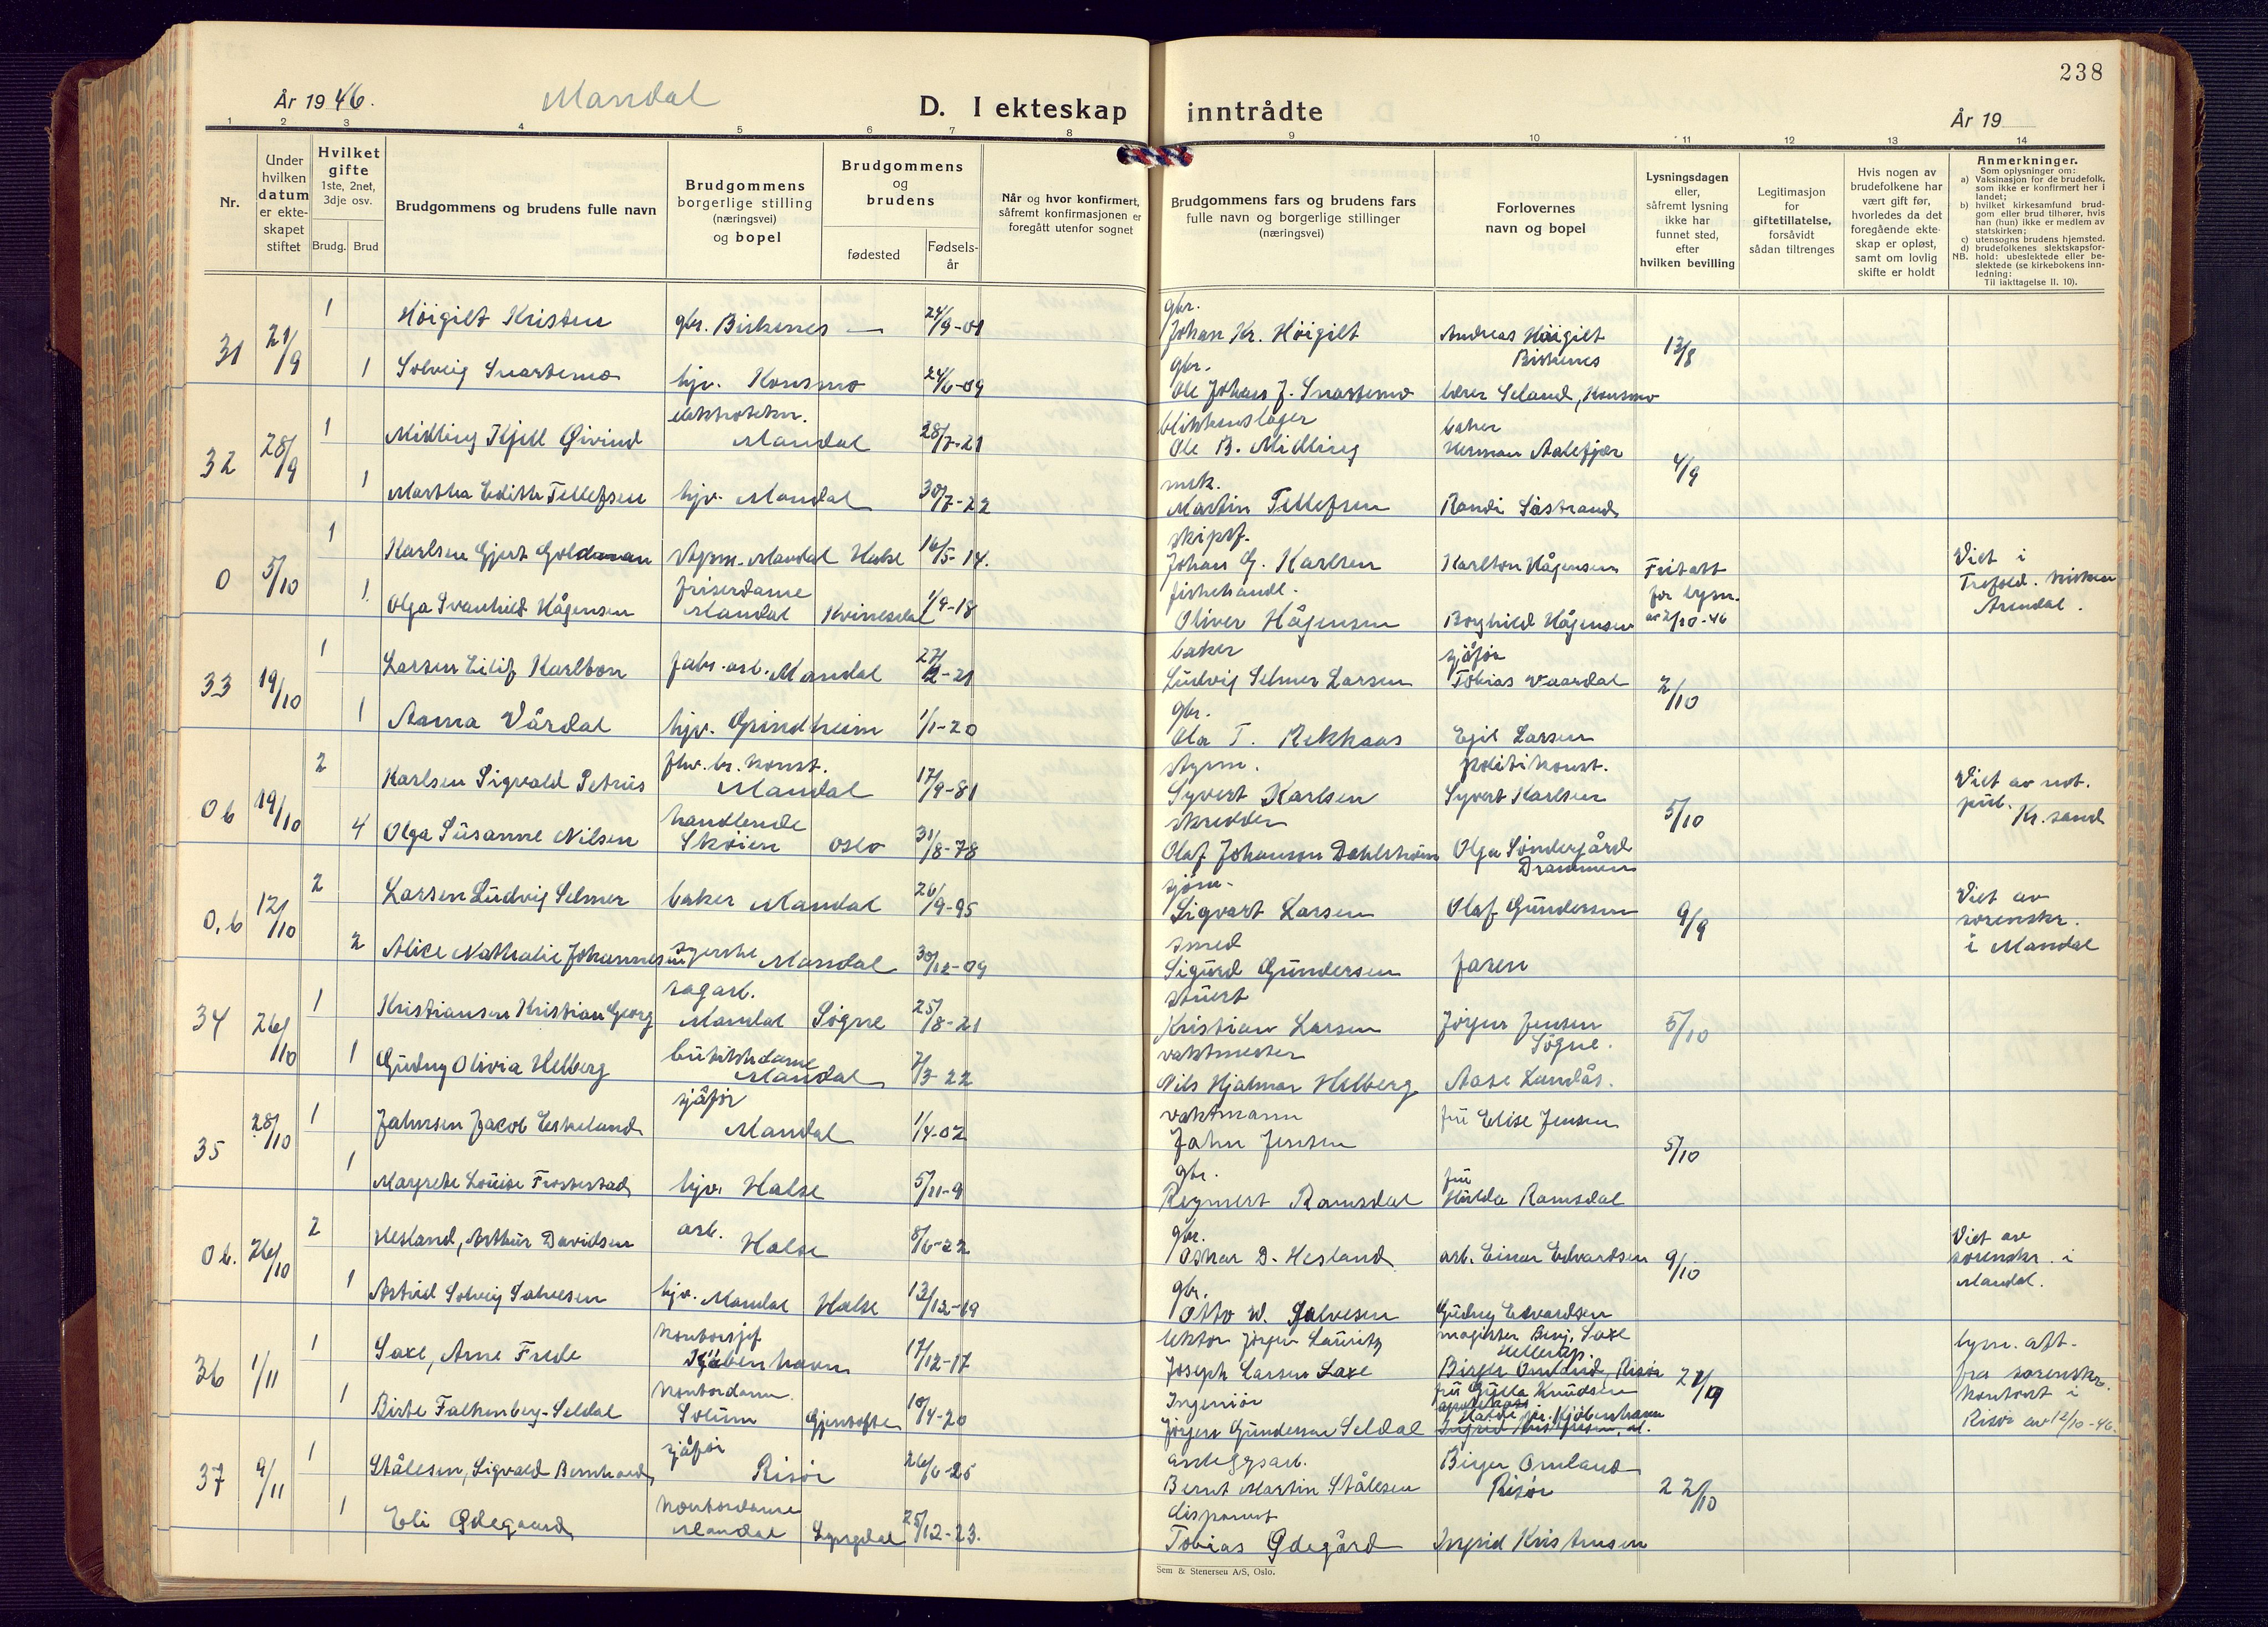 238
År 1946.
Mandal
D. I ekteskap inntrådte
År 19
1 2 3 4 5 6 7 8 9 10 11 12 13 14
Nr.
Under hvilken datum er ekteskapet stiftet
Hvilket gifte
1ste, 2net, 3dje osv.
Brudg. Brud
Brudgommens og brudens fulle navn
Brudgommens borgerlige stilling (næringsvei) og bopel
Brudgommens og brudens
fødested
Fødselsår
Når og hvor konfirmert, såfremt konfirmasjonen er foregått utenfor sognet
Brudgommens fars og brudens fars fulle navn og borgerlige stillinger (næringsvei)
Forlovernes navn og bopel
Lysningsdagen eller, såfremt lysning ikke har funnet sted, efter hvilken bevilling
Legitimasjon for giftetillatelse, forsåvidt sådan tiltrenges
Hvis nogen av brudefolkene har vært gift før, hvorledes da det foregående ekteskap er opløst, samt om lovlig skifte er holdt
Anmerkninger.
Som oplysninger om:
a) Vaksinasjon for de brudefolk, som ikke er konfirmert her i landet;
b) hvilket kirkesamfund brudgom eller brud tilhører, hvis han (hun) ikke er medlem av statskirken;
c) utensogns brudens hjemsted.
d) brudefolkenes slektskapsforhold: ubeslektede eller beslektede (se kirkebokens innledning:
NB.
Til iakttagelse II. 10).
31 21/9 1 Höigilt Kristen gbr. Birkenes — 24/9-01 gbr. Johan Kr. Höigilt Andreas Höigilt Birkenes 13/8
1 Solveig Snartemo hjv. Konsmo 24/6-09 gbr. Ole Johan J. Snartemo lærer Seland, Konsmo
32 28/9 1 Midling Kjell Øivind elektrotekn. Mandal 28/7-21 blikkenslager Ole B. Midling baker Herman Aalefjær 4/9
1 Martha Edith Tellefsen hjv. Mandal 30/7-22 mek. Martin Tellefsen Randi Såstrand
0 5/10 1 Karlsen Gjert Goldman Mandal Halse 16/5-14. skipsf. Johan G. Karlsen Karlton Hågensen Fritatt for lysn. av 2/10-46 Viet i Trefold. kirken Arendal.
1 Olga Svanhild Hågensen friserdame Mandal Kvinesdal 1/9-18 fiskehandl. Oliver Hågensen Borghild Hågensen
33 19/10 1 Larsen Eilif Karlton fabr. arb. Mandal 27/2-21 baker Ludvig Selmer Larsen sjåfør Tobias Vaardal 2/10
1 Aanna Vårdal hjv. Grindheim 1/1-20 gbr. Ola T. Rekkaas Egil Larsen
0 b 19/10 2 Karlsen Sigvald Petrus fhv. br. konst. Mandal 17/9-81 styrm. Syvert Karlsen politikonst. Syvert Karlsen 5/10 Viet av not. pub. Kr.sand
4 Olga Susanne Nilsen handlende Skøien Oslo 31/8-78 skredder Olaf Johanson Dahlström Olga Søndergård Drammen
0.b 12/10 2 Larsen Ludvig Selmer baker Mandal 26/9-95 sjøm. Sigvart Larsen Olaf Gundersen 9/9 Viet av sorenskr. i Mandal
2 Alice Nathalie Johannesen syerske Mandal 30/12-09 smed Sigurd Gundersen faren
34 26/10 1 Kristiansen Kristian Georg sagarb. Mandal Søgne 25/8-21 stuert Kristian Larsen Jörgen Jensen Søgne. 5/10
1 Gudny Olivia Helberg butikkdame Mandal 7/3-22 vaktmester Nils Hjalmar Helberg Aase Lundås.
35 28/10 1 Jahnsen Jacob Eskeland sjåfør Mandal 1/4-02 vaktmann Jahn Jensen fru Elise Jensen 5/10
1 Margrete Louise Frostestad hjv. Halse 5/11-9 gbr. Reymert Ramsdal fru Hilda Ramsdal
0 b. 26/10 2 Hesland, Arthur Davidsen arb. Halse 8/6-22 gbr. Oskar D. Hesland arb. Einar Edvardsen 9/10 Viet av sorenskr. i Mandal.
1 Astrid Solveig Salvesen hjv. Mandal Halse 13/12-19 gbr. Otto W. Salvesen Gudny Edvardsen
36 1/11 1 Saxe, Arne Frede kontorsjef Kjøbenhavn 17/12-17 lektor Jörgen Lauritz Joseph Larsen Saxe magister Benj. Saxe Hellerup Birger Omlund, Risør 21/9 lysn. att. fra sorenskr. kontort i Risør av 12/10-46.
1 Birte Falkenberg-Seldal kontordame. Solum Gjentofte 10/4-20 Ingeniør Jörgen Gunderson Seldal fru Gulla Knudsen
37 9/11 1 Stålesen, Sigvald Bernhard sjåfør Risør 26/6-25 anleggsarb. Bernt Martin Stålesen Birger Omland Risør 22/10
1 Eli Ødegaard kontordame Mandal Lyngdal 25/12-23. disponent Tobias Ødegård Ingrid Kristensen
Sem & Stenersen A/S, Oslo.